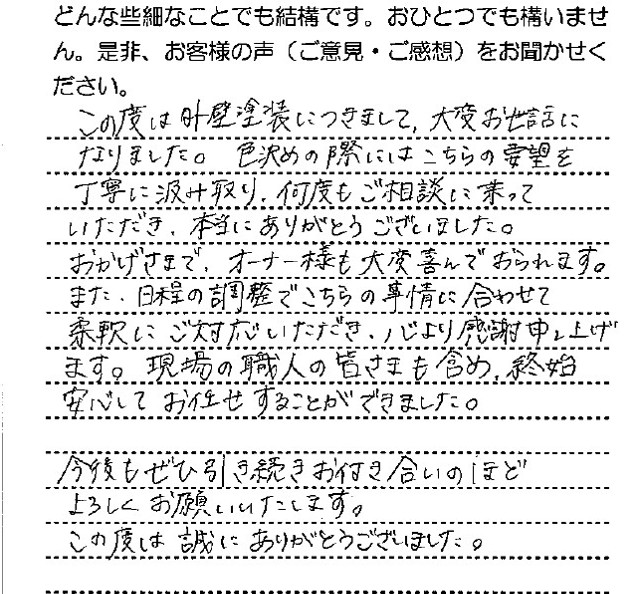 どんな些細なことでも結構です。おひとつでも構いませ
ん。是非、お客様の声（ご意見・ご感想）をお聞かせく
ださい。
この度は外壁塗装につきまして、大変お世話に
なりました。色決めの際にはこちらの要望を
丁寧に汲み取り、何度もご相談に乗って
いただき、本当にありがとうございました。
おかげさまで、オーナー様も大変喜んでおられます。
また、日程の調整でこちらの事情に合わせて
柔軟にご対応いただき、心より感謝申し上げ
ます。現場の職人の皆さまも含め、終始
安心してお任せすることができました。
今後もぜひ引き続きお付き合いのほど
よろしくお願いいたします。
この度は誠にありがとうございました。